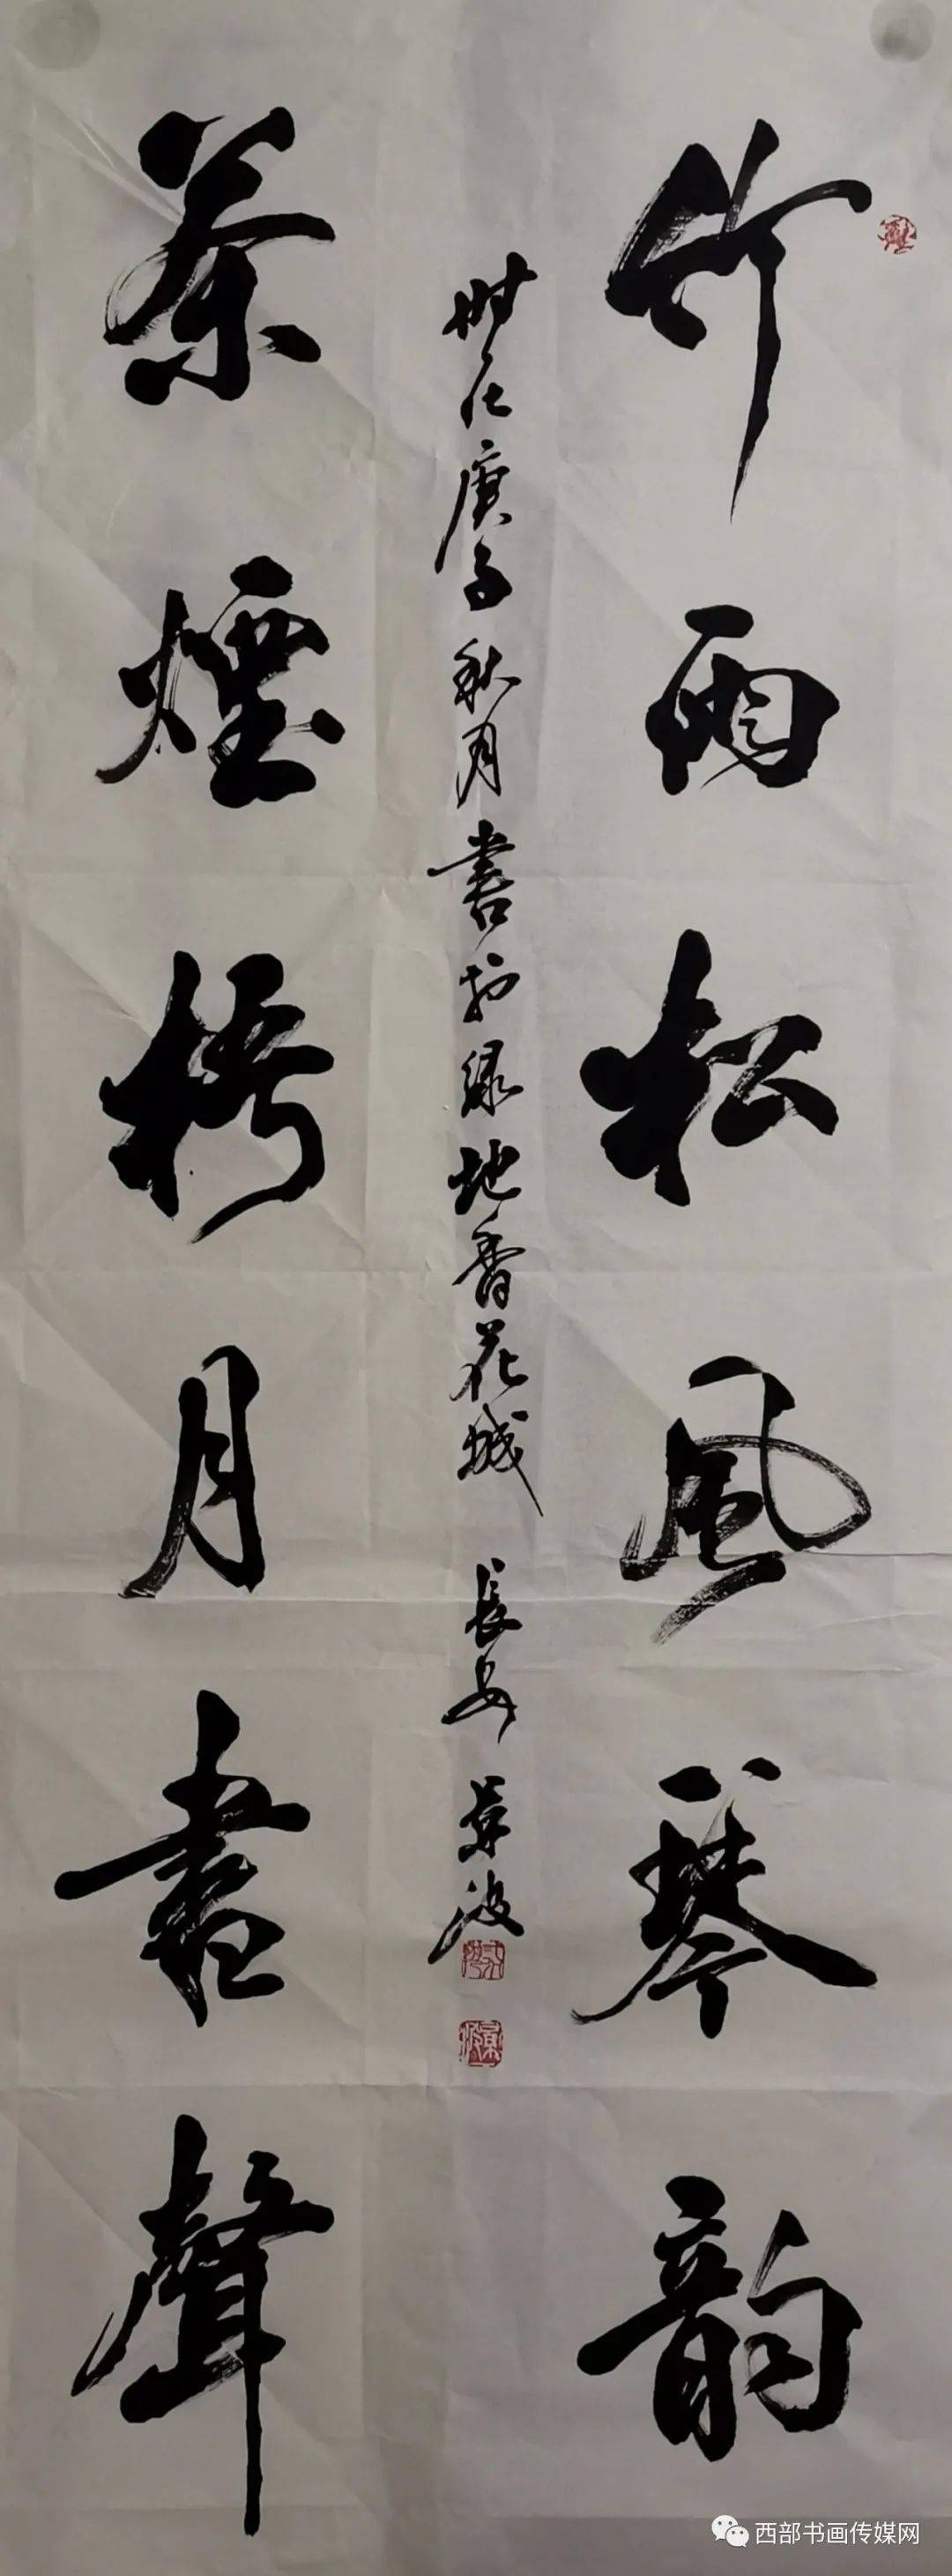 竹雨松风琴韵
茶煙梧月書聲
时在庚子秋月書於绿地香花城 長安 葉波
西部书画传媒网